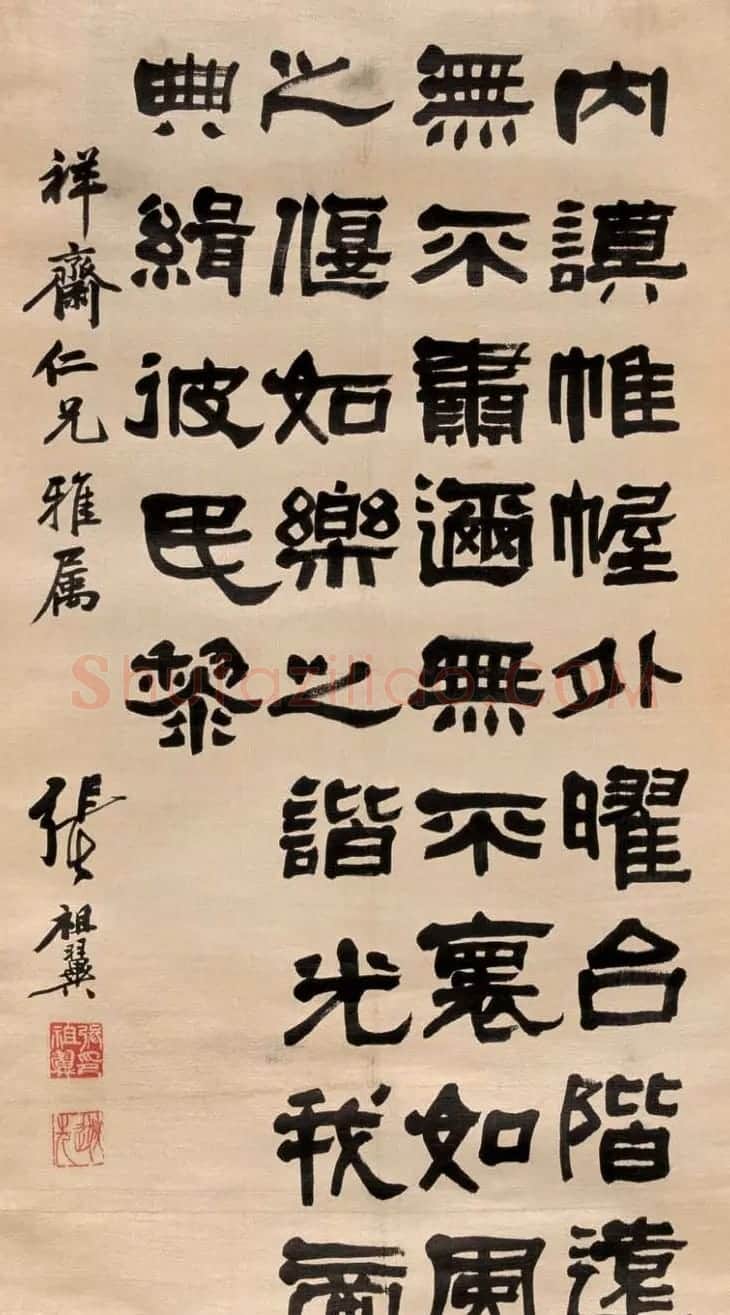 内謨帷幄外曜台階遠
無不肅邇無不褱如風
之偃如樂之諧光我帝
典緝彼民黎
祥齋仁兄雅属
張祖翼
張祖翼印
逖先
Shufaziliao.COM